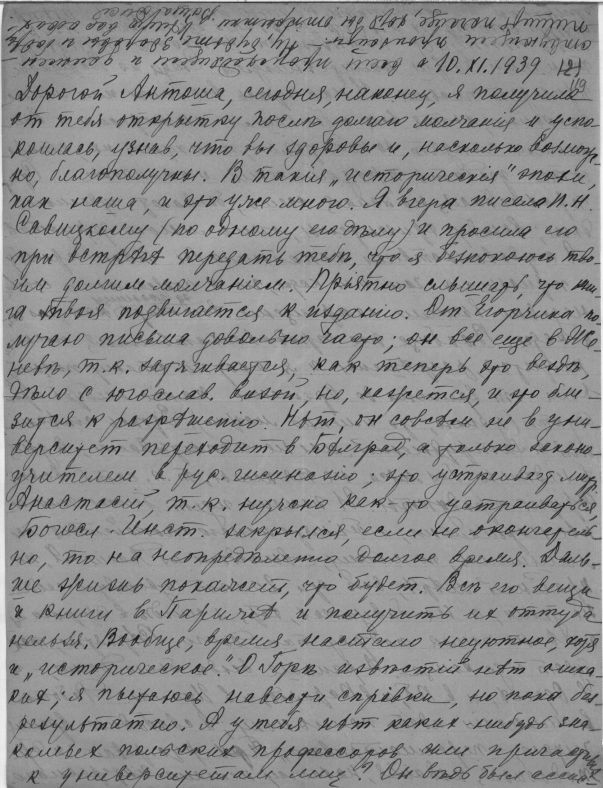 10.XI.1939
Дорогой Антоша, сегодня, наконец, я получила
от тебя открытку после долгаго молчания и успо-
коилась, узнав, что вы здоровы и, насколько возмож-
но, благополучны. В такия „историческия" эпохи,
как наша, и это уже много. Я вчера писала П. Н.
Савицкому (по одному его дѣлу) и просила его
при встрѣчѣ передать тебѣ, что я безпокоюсь тво-
им долгим молчаніем. Пріятно слышать, что кни-
га твоя подвигается к изданію. От Егорчика по-
лучаю письма довольно часто; он все еще в Же-
невѣ, т.к. затягивается, как теперь это вездѣ,
дѣло с югослав. визой, но, кажется, и это бли-
зится к разрѣшенію. Нѣт, он совсѣм не в уни-
верситет переходит в Бѣлград, а только законо-
учителем в рус. гимназію; это устраивает митр.
Анастасій, т.к. нужно как-то устраиваться.
Богосл. Инст. закрылся, если не окончатель-
но, то на неопредѣленно долгое время. Даль-
ше жизнь покажет, что будет. Всѣ его вещи
и книги в Парижѣ и получить их оттуда
нельзя. Вообще, время настало неуютное, хотя
и „историческое". О Горѣ извѣстій нѣт ника-
ких; я пытаюсь навести справки, но пока без-
результатно. А у тебя нѣт каких-нибудь зна-
комых польских профессоров или причастных
к университетам лиц? Он вѣдь был ассис-